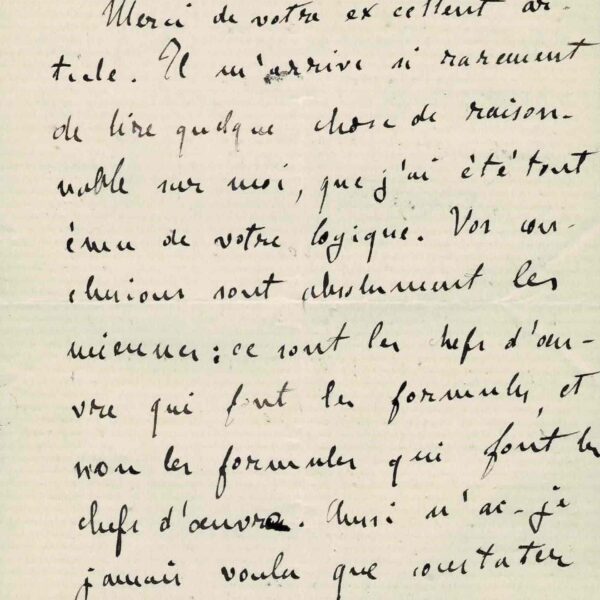 Merci de votre excellent ar-
ticle. Il m'arrive si rarement
de lire quelque chose de raison-
nable sur moi, que j'ai été tout
ému de votre logique. Vos con-
clusions sont absolument les
miennes : ce sont les chefs d'œu-
vre qui font les formules, et
non les formules qui font les
chefs d'œuvre. Aussi n'ai-je
jamais voulu que constater